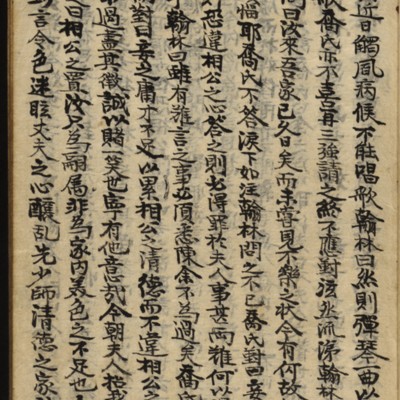 近日觸風病候不能唱歌翰林曰然則彈琴一曲以
喬氏亦不喜再三強請之終不應對泫然流涕翰林
問曰汝來吾家已久日矣而未嘗見不樂之狀今有何故
惱耶喬氏不答淚下如注翰林問之不已喬氏對曰妾
恐違相公之心答之則必得罪於夫人事甚兩難何以
翰林曰雖有難言之事必須悉陳余不爲過矣喬氏
對曰妾之庸才不足以累相公之清德而不違相公之
不過盡其微誠以賭一笑也寧有他意哉今朝夫人招我
曰相公之置汝只爲嗣属非爲家內美色之不足也
言令色迷眩丈夫之心釀乱先少師清德之家